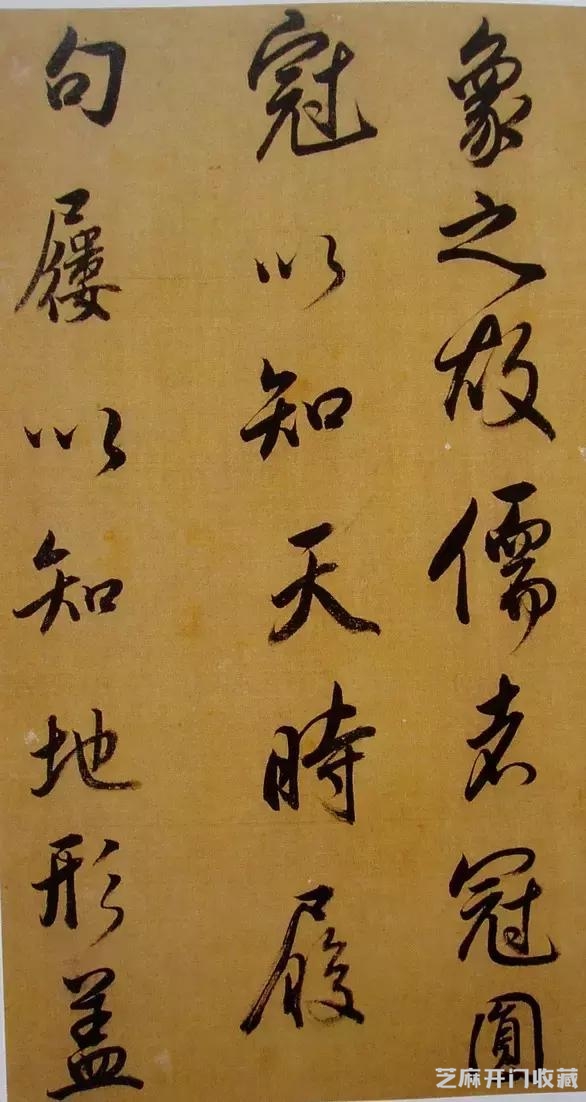 象之故儒者冠圓
冠以知天時履
句屨以知地形盖
芝麻开门收藏